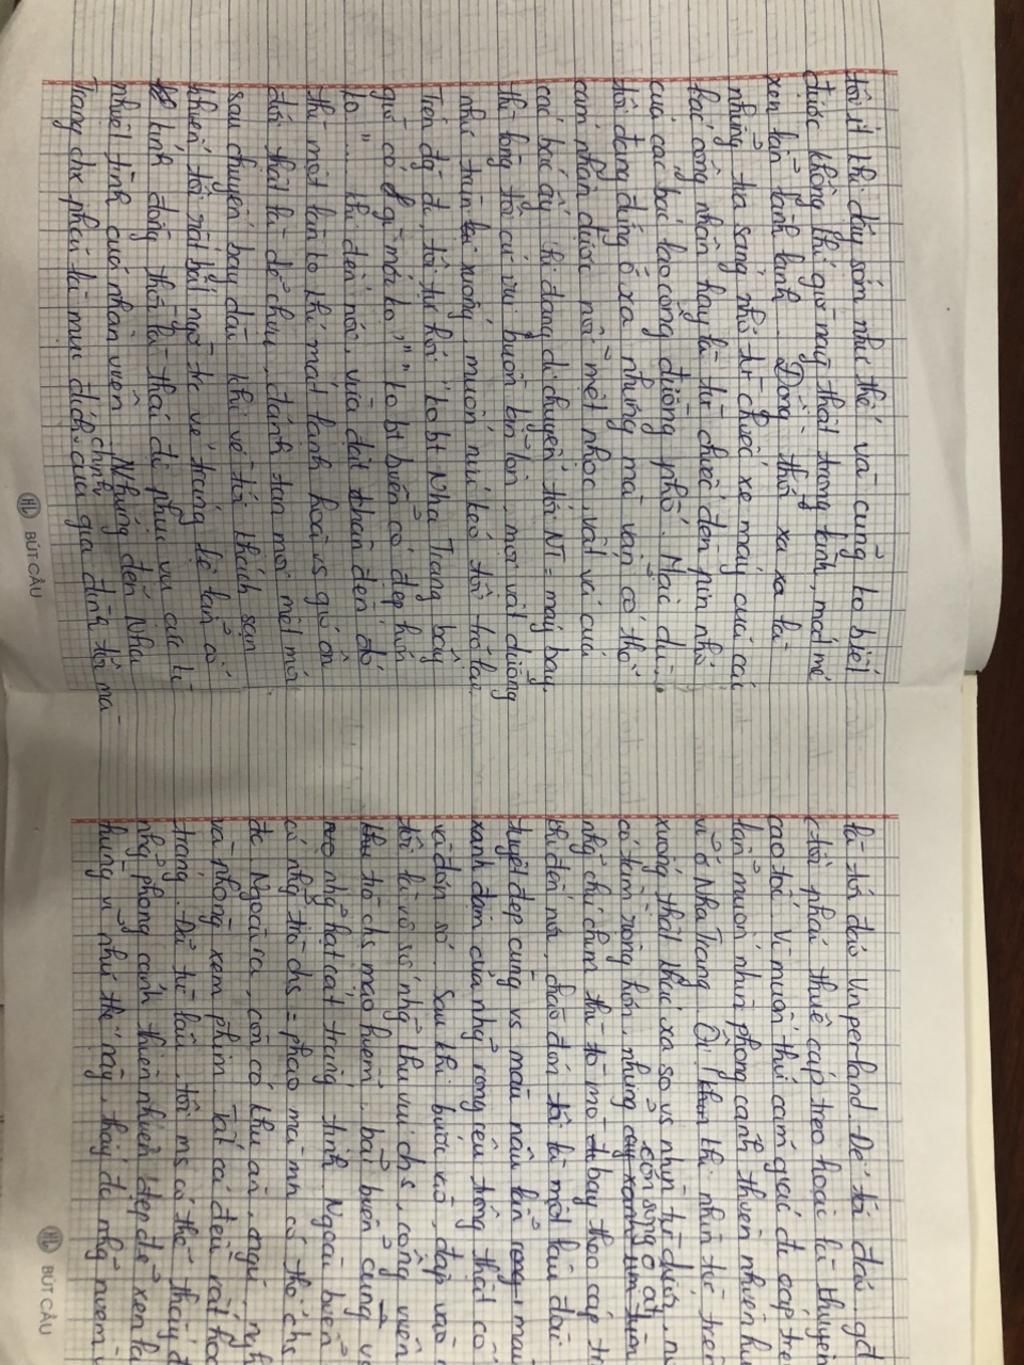 tôi ít khi dậy sớm như thế và cũng ko biết
được không khí giờ này thật trong lành, mát mẻ
xen lẫn lành lạnh. Đồng thời xa xa là
những tia sáng nhỏ từ chiếc xe máy của các
bác công nhân hay là từ chiếc đèn pin nhỏ
của các bác lao công đường phố. Mặc dù
tôi đang đứng ở xa nhưng mà vẫn có thể
cảm nhận được nỗi mệt nhọc, vất vả của
các bác ấy. Khi đang di chuyển tới NT = máy bay,
thì lòng tôi cứ vui buồn lẫn lộn, mọi vật dường
như trùn xuống, muốn níu kéo tôi trở lại.
Trên đg đi, tôi tự hỏi "ko bt Nha Trang bây
giờ có gì mới ko", "ko bt biển có đẹp hơn
ko"... Khi đến nơi, vừa đặt chân đến đó
thì một làn ko khí mát lạnh hoà vs gió ôn
đới thật là dễ chịu, đánh tan mọi mệt mỏi
sau chuyến bay dài. Khi về tới khách sạn
khiến tôi rất bất ngờ tr về trang lễ tân cổ
kính đồng thời là thái độ phục vụ cực kì
nhiệt tình của nhân viên. Nhưng đến Nha
Trang chx phải là mục đích chính của gia đình tôi mà
BÚT CÂU
là tới đảo Vinperland. Để tới đảo, gđ
tôi phải thuê cáp treo hoặc là thuyền
cao tốc. Vì muốn thử cảm giác đi cáp tre
lẫn muốn nhìn phong cảnh thiên nhiên hu
vĩ ở Nha Trang. Ôi! thì nhìn từ trên
xuống thật khác xa so vs nhìn từ dưới, n
có tầm rộng hơn, nhưng còn sống ở ất
nhg chú chim thì tò mò bay theo cáp tr
khi đến nơi, chào đón tôi là một lâu đài
tuyệt đẹp cùng vs màu nâu lẫn màu
xanh đậm của nhg rong rêu trông thật cổ
và đơn sơ. Sau khi bước vô, đập vào
tôi là vô số nhg thú vui chs, công viên
trò chs mạo hiểm, bãi biển cùng v
nhg hạt cát trắng tinh. Ngoài biển
có nhg trò chs = phao mà mn có thể chs
đc. Ngoài ra, còn có khu ăn, nghỉ, ngh
và phòng xem phim. Tất cả đều rất hoà
tráng. Đã từ lâu, tôi ms có thể thấy đ
nhg phong cảnh thiên nhiên đẹp đẽ xen lẫ
hùng vĩ như thế này, thấy đc nhg niềm v
BÚT CÂU